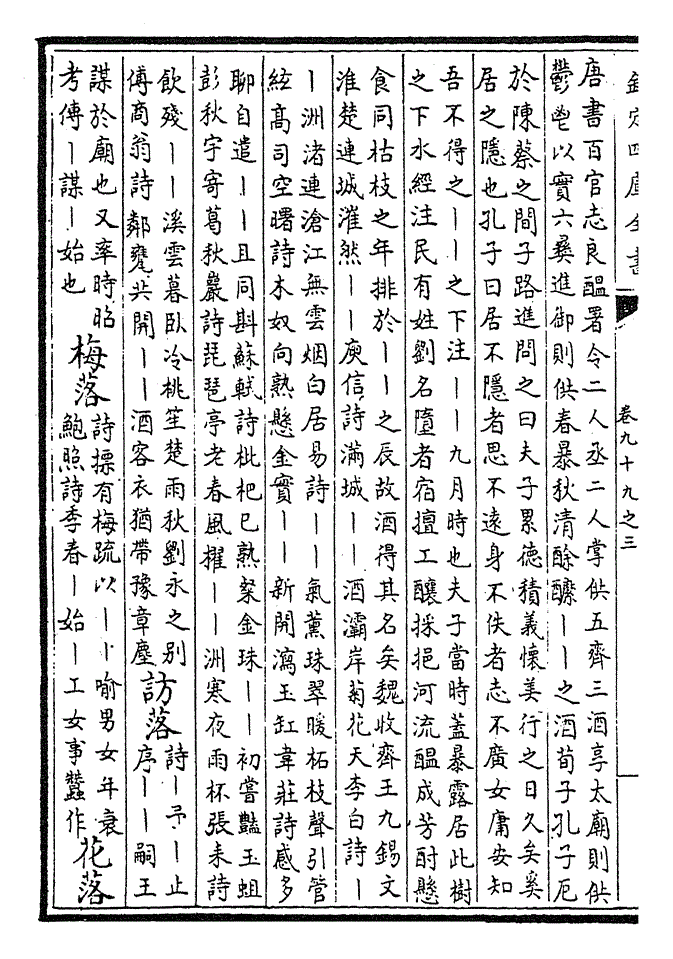 欽定四庫全書
卷九十九之三
唐書百官志良醖署令二人丞二人掌供五齊三酒享太廟則供
鬱鬯以實六彝進御則供春暴秋清酴醾丨丨之酒荀子孔子厄
於陳蔡之間子路進問之曰夫子累徳積義懷美行之日久矣奚
居之隱也孔子曰居不隱者思不遠身不佚者志不廣女庸安知
吾不得之丨丨之下注丨丨九月時也夫子當時蓋暴露居此樹
之下水經注民有姓劉名墮者宿擅工釀採挹河流醖成芳酎懸
食同枯枝之年排於丨丨之辰故酒得其名矣魏收齊王九錫文
淮楚連城漼然丨丨庾信詩滿城丨丨酒灞岸菊花天李白詩丨
丨洲渚連滄江無雲烟白居易詩丨丨氣薰珠翠暖柘枝聲引管
絃髙司空曙詩木奴向熟懸金實丨丨新開瀉玉缸韋莊詩感多
聊自遣丨丨且同斟蘇軾詩枇杷已熟粲金珠丨丨初嘗豔玉蛆
彭秋宇寄葛秋巖詩琵琶亭老春風擢丨丨洲寒夜雨杯張耒詩
飲殘丨丨溪雲暮臥冷桃笙楚雨秋劉永之别
傅商翁詩鄰甕共開丨丨酒客衣猶帶豫章塵
訪落
詩丨予丨止
序丨丨嗣王
謀於廟也又率時昭
考傳丨謀丨始也
梅落
詩摽有梅疏以丨丨喻男女年衰
鮑照詩季春丨始丨工女事蠶作
花落